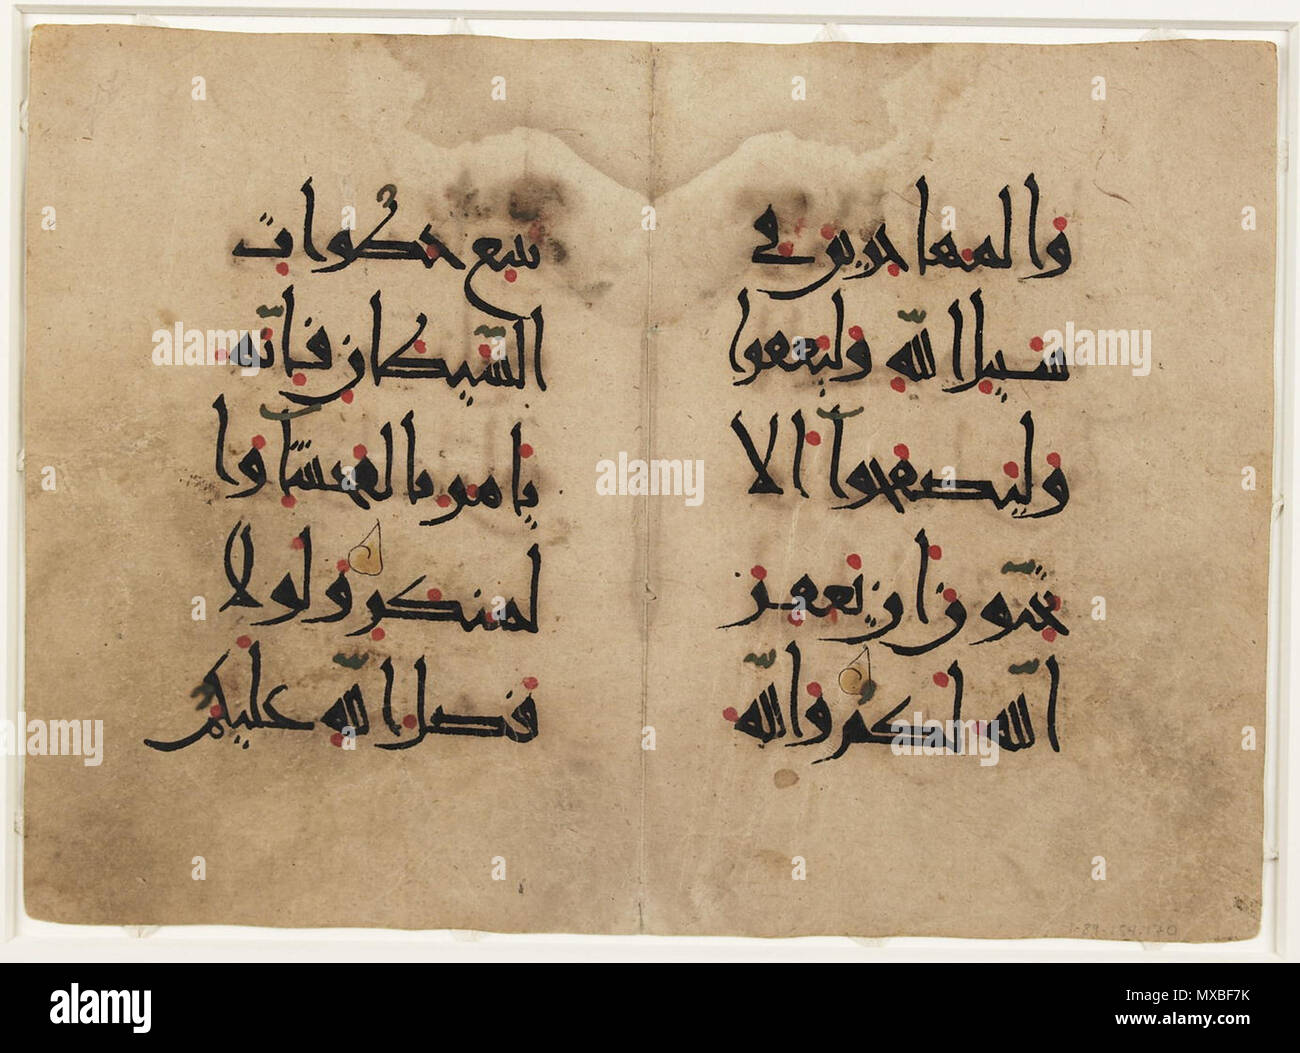 والمهاجرين في
سبيل الله وليعفوا
وليصفحوا الا
تحبون ان يغفر
الله لكم والله
يتبع خطوات
الشيطان فانه
يامر بالفحشا وا
لمنكر ولولا
فضل الله عليكم
alamy
alamy
alamy
alamy
alamy
alamy
Image ID: MXBF7K
www.alamy.com